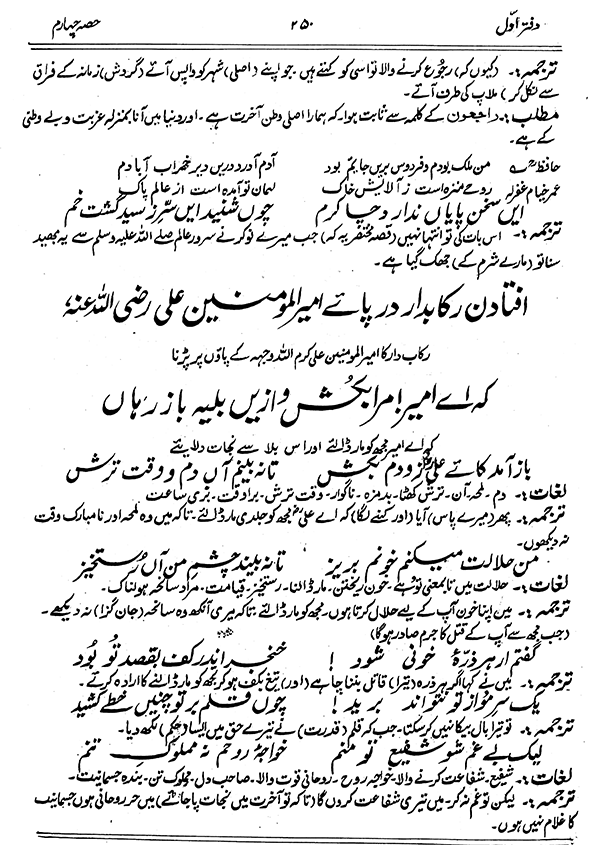 دفتر اوّل ۲۵۰ حصہ چہارم
ترجمہ:۔ (کیوں کہ) رجوع کرنے والا تو اسی کو کہتے ہیں۔ جو اپنے (اصلی) شہر کو واپس آئے (گردشِ) زمانہ کے فراق
سے نکل کر) ملاپ کی طرف آئے۔
مطلب:۔ راجعون کے کلمہ سے ثابت ہوا۔ کہ ہمارا اصلی وطن آخرت ہے۔ اور دنیا میں آنا بمنزلہ غربت و بے وطنی
کے ہے۔
حافظؒ من ملک بودم و فردوس بریں جایم بود آدم آورد دریں دیر خراب آبادم
عمر خیام غفرلہ روحے منزہ است ز آلایش خاک مہمان تو آمدہ است از عالم پاک
ایں سخن پایاں ندارد چاکرم چوں شنید ایں سرّ ز سید گشت خم
ترجمہ:۔ اس بات کی تو انتہا نہیں (قصہ مختصر یہ کہ) جب میرے نوکر نے سرور عالم صلے اللہ علیہ وسلم سے یہ بھید
سنا تو (مارے شرم کے) جھک گیا ہے۔
افتادن رکابدار در پائے امیر المؤمنین علی رضی اللہ عنہ،
رکاب دار کا امیر المومنین علی کرم اللہ وجہہ کے پاؤں پر پڑنا
کہ اے امیر مرا بکش و ازیں بلیہ باز رہاں
کہ اے امیر مجھ کو مار ڈالئے اور اس بلا سے نجات دلائیے
باز آمد کائے علی زودم بکش تا نہ بینم آں دم و وقت ترش
لغات:۔ دم۔ لمحہ۔ آن۔ ترش کھٹا۔ بدمزہ۔ ناگوار۔ وقت ترش۔ برا وقت۔ بری ساعت
ترجمہ:۔ پھر (میرے پاس) آیا (اور کہنے لگا) کہ اے علی مجھ کو جلدی مار ڈالئے۔ تاکہ میں وہ لمحہ اور نامبارک وقت
نہ دیکھوں۔
من حلالت میکنم خونم بریز تا نہ بیند چشم من آں رستخیز
لغات:۔ حلالت میں تا بمعنی تو ہے۔ خون ریختن۔ مار ڈالنا۔ رستخیز۔ قیامت۔ مراد سانحہ ہولناک۔
ترجمہ:۔ میں اپنا خون آپ کے لیے حلال کرتا ہوں۔ مجھ کو مار ڈالئے تاکہ میری آنکھ وہ سانحہ (جان گزا) نہ دیکھے۔
(جب مجھ سے آپ کے قتل کا جرم صادر ہوگا)
گفتم ار ہر ذرۂ خونی شود! خنجر اندر کف بقصد تو بود
ترجمہ:۔ میں نے کہا اگر ہر ذرہ (تیرا) قاتل بننا چاہے (اور) تیغ بکف ہو کر تجھ کو مار ڈالنے کا ارادہ کرے۔
یک سر مو از تو نتواند برید! چوں قلم بر تو چنیں خطے کشید
ترجمہ:۔ تو تیرا بال بیکا نہیں کر سکتا۔ جب کہ قلم (قدرت) نے تیرے حق میں ایسا (حکم) لکھ دیا۔
لیک بے غم شو شفیع تو منم خواجۂ روحم نہ مملوک تنم
لغات:۔ شفیع۔ شفاعت کرنے والا۔ خواجہ روح۔ روحانی قوت والا۔ صاحب دل۔ مملوک تن۔ بندہ جسمانیت۔
ترجمہ:۔ لیکن تو غم نہ کر۔ میں تیری شفاعت کروں گا (تاکہ تو آخرت میں نجات پا جائے) میں حُر روحانی ہوں جسمانیت
کا غلام نہیں ہوں۔